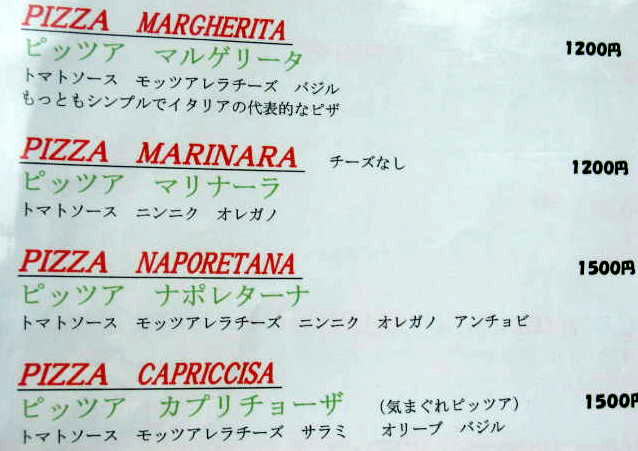 PIZZA MARGHERITA
ピッツア マルゲリータ 1200円
トマトソース モッツアレラチーズ バジル
もっともシンプルでイタリアの代表的なピザ
PIZZA MARINARA チーズなし 1200円
ピッツア マリナーラ
トマトソース ニンニク オレガノ
PIZZA NAPORETANA 1500円
ピッツア ナポレターナ
トマトソース モッツアレラチーズ ニンニク オレガノ アンチョビ
PIZZA CAPRICCISA
ピッツア カプリチョーザ (気まぐれピッツア) 1500円
トマトソース モッツアレラチーズ サラミ オリーブ バジル